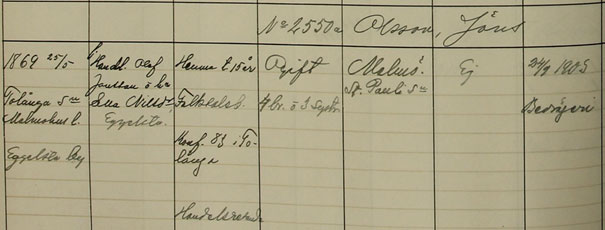 No 2550a Olsson, Jöns
1869 25/5
Tolånga Sn
Malmöhus l.
Eggelsta by
Handl. Olof
Jonsson o hu
Elna Nilsd.
Eggelsta.
Hemma t. 15 år
Folkskola.
Konf. 83 i To-
långa
Handelsresande
Ogift
4 br. o 3 Systr.
Malmö.
St. Pauli Sn
Ej
1905
Bedrägeri